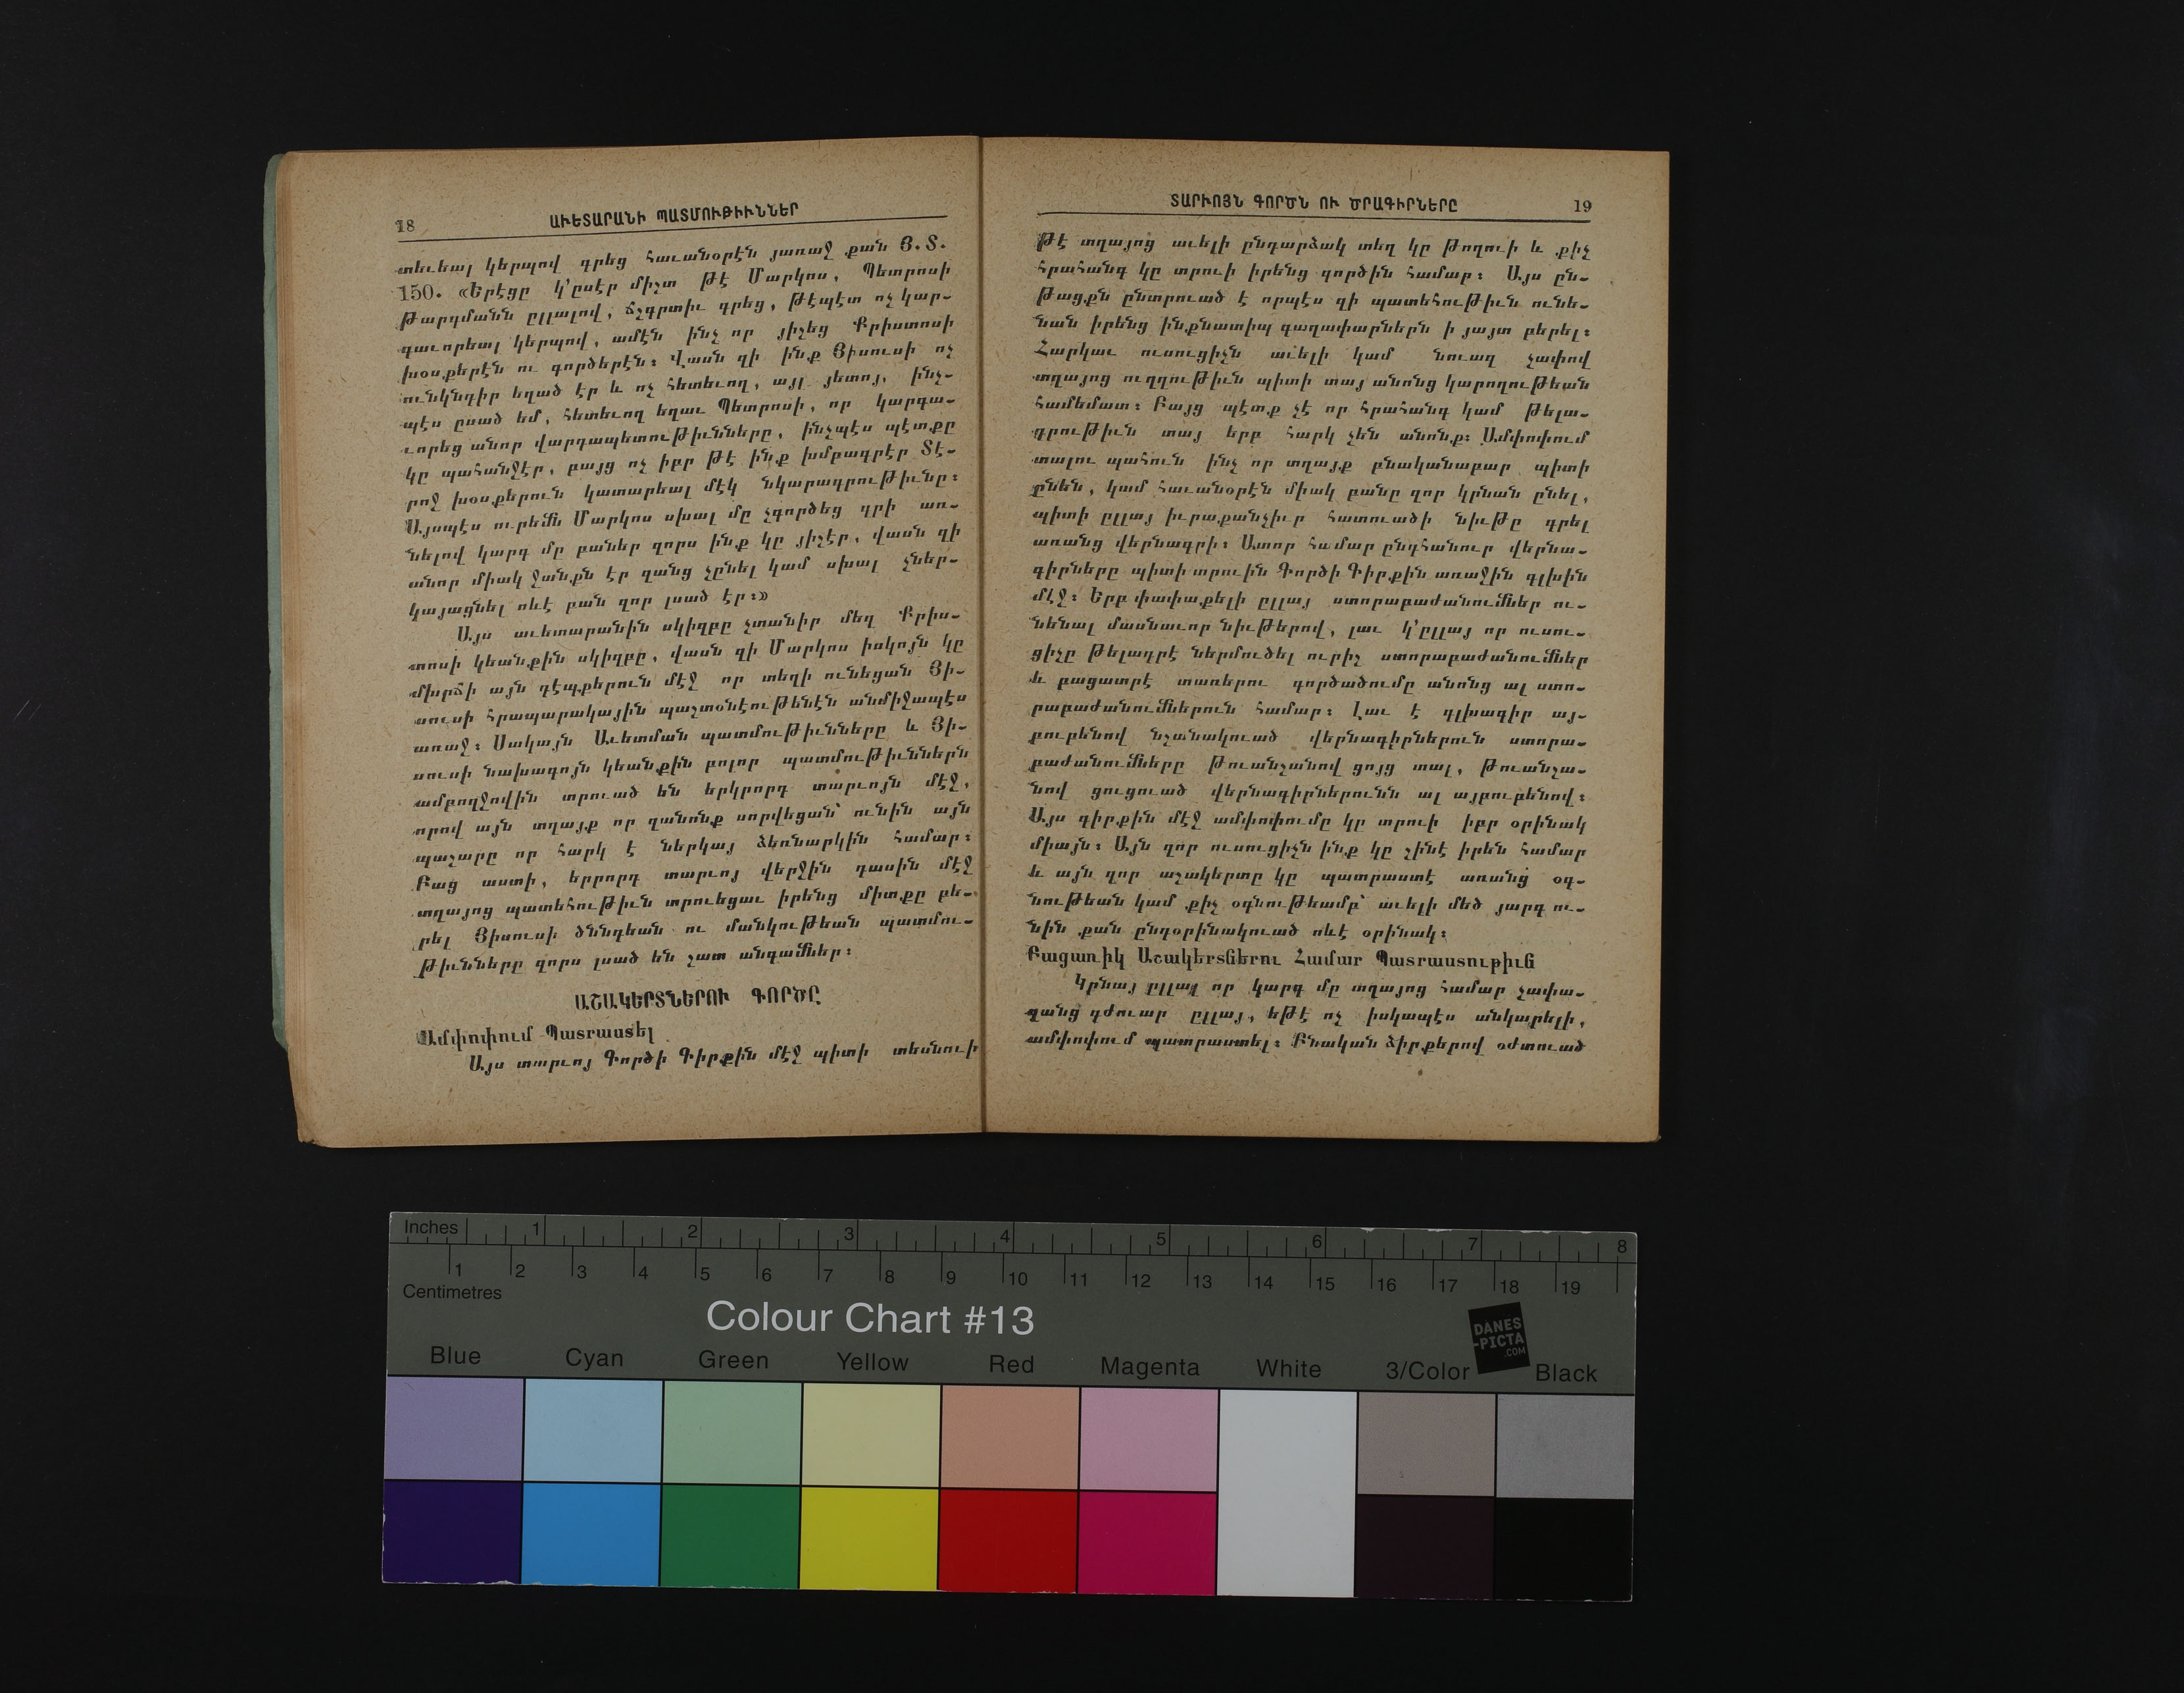 18
ԱՒԵՏԱՐԱՆԻ ՊԱՏՄՈՒԹԻՒՆՆԵՐ
տեւեալ կերպով գրեց հաւանօրէն յառաջ քան Յ.Տ.
150. «Երէցը կ՚ըսէր միշտ թէ Մարկոս, Պետրոսի
թարգմանն ըլլալով, ճշգրտիւ գրեց, թէպէտ ոչ կար-
գաւորեալ կերպով, ամէն ինչ որ յիշեց Քրիստոսի
խօսքերէն ու գործերէն։ Վասն զի ինք Յիսուսի ոչ
ունկնդիր եղած էր և ոչ հետեւող, այլ յետոյ, ինչ-
պէս ըսած եմ, հետեւող եղաւ Պետրոսի, որ կարգա-
ւորեց անոր վարդապետութիւնները, ինչպէս պէտքը
կը պահանջէր, բայց ոչ իբր թէ ինք խմբագրէր Տէ-
րոջ խօսքերուն կատարեալ մէկ նկարագրութիւնը։
Այսպէս ուրեմն Մարկոս սխալ մը չգործեց գրի առ-
նելով կարգ մը բաներ զորս ինք կը յիշէր, վասն զի
անոր միակ ջանքն էր զանց չընել կամ սխալ չներ-
կայացնել ոևէ բան զոր լսած էր։»
Այս աւետարանին սկիզբը չտանիր մեզ Քրիս-
տոսի կեանքին սկիզբը, վասն զի Մարկոս իսկոյն կը
մխրճի այն դէպքերուն մէջ որ տեղի ունեցան Յի-
սուսի հրապարակային պաշտօնէութենէն անմիջապէս
առաջ։ Սակայն Աւետման պատմութիւնները և Յի-
սուսի նախագոյն կեանքին բոլոր պատմութիւններն
ամբողջովին տրուած են երկրորդ տարւոյն մէջ,
որով այն տղայք որ զանոնք սորվեցան՝ ունին այն
պաշարը որ հարկ է ներկայ ձեռնարկին համար։
Բաց աստի, երրորդ տարւոյ վերջին դասին մէջ
տղայոց պատեհութիւն տրուեցաւ իրենց միտքը բե-
րել Յիսուսի ծննդեան ու մանկութեան պատմու-
թիւնները զորս լսած են շատ անգամներ։
ԱՇԱԿԵՐՏՆԵՐՈՒ ԳՈՐԾԸ
Ամփոփում Պատրաստել
Այս տարւոյ Գործի Գիրքին մէջ պիտի տեսնուի
ՏԱՐԻՈՅՆ ԳՈՐԾՆ ՈՒ ԾՐԱԳԻՐՆԵՐԸ
19
թէ տղայոց աւելի ընդարձակ տեղ կը թողուի և քիչ
հրահանգ կը տրուի իրենց գործին համար։ Այս ըն-
թացքն ընտրուած է որպէս զի պատեհութիւն ունե-
նան իրենց ինքնատիպ գաղափարներն ի յայտ բերել։
Հարկաւ ուսուցիչն աւելի կամ նուազ չափով
տղայոց ուղղութիւն պիտի տայ անոնց կարողութեան
համեմատ։ Բայց պէտք չէ որ հրահանգ կամ թելա-
դրութիւն տայ երբ հարկ չեն անոնք։ Ամփոփում
տալու պահուն ինչ որ տղայք բնականաբար պիտի
ընեն, կամ հաւանօրէն միակ բանը զոր կրնան ընել,
պիտի ըլլայ իւրաքանչիւր հատուածի նիւթը գրել
առանց վերնագրի։ Ատոր համար ընդհանուր վերնա-
գիրները պիտի տրուին Գործի Գիրքին առաջին գլխին
մէջ։ Երբ փափաքելի ըլլայ ստորաբաժանումներ ու-
նենալ մասնաւոր նիւթերով, լաւ կ՚ըլլայ որ ուսու-
ցիչը թելադրէ ներմուծել ուրիշ ստորաբաժանումներ
և բացատրէ տառերու գործածումը անոնց ալ ստո-
րաբաժանումներուն համար։ Լաւ է գլխագիր այ-
բուբենով նշանակուած վերնագիրներուն ստորա-
բաժանումները թուանշանով ցոյց տալ, թուանշա-
նով ցուցուած վերնագիրներունն ալ այբուբենով։
Այս գիրքին մէջ ամփոփումը կը տրուի իբր օրինակ
միայն։ Այն զոր ուսուցիչն ինք կը շինէ իրեն համար
և այն զոր աշակերտը կը պատրաստէ առանց օգ-
նութեան կամ քիչ օգնութեամբ՝ աւելի մեծ յարգ ու-
նին քան ընդօրինակուած ոևէ օրինակ։
Բացառիկ Աշակերտներու Համար Պատրաստութիւն
Կրնայ ըլլալ որ կարգ մը տղայոց համար չափա-
զանց դժուար ըլլայ, եթէ ոչ իսկապէս անկարելի,
ամփոփում պատրաստել։ Բնական ձիրքերով օժտուած
Inches 1 2 3 4 5 6 7 8
1 2 3 4 5 6 7 8 9 10 11 12 13 14 15 16 17 18 19
Centimetres
Colour Chart #13
DANES
-PICTA
.COM
Blue Cyan Green Yellow Red Magenta White 3/Color Black